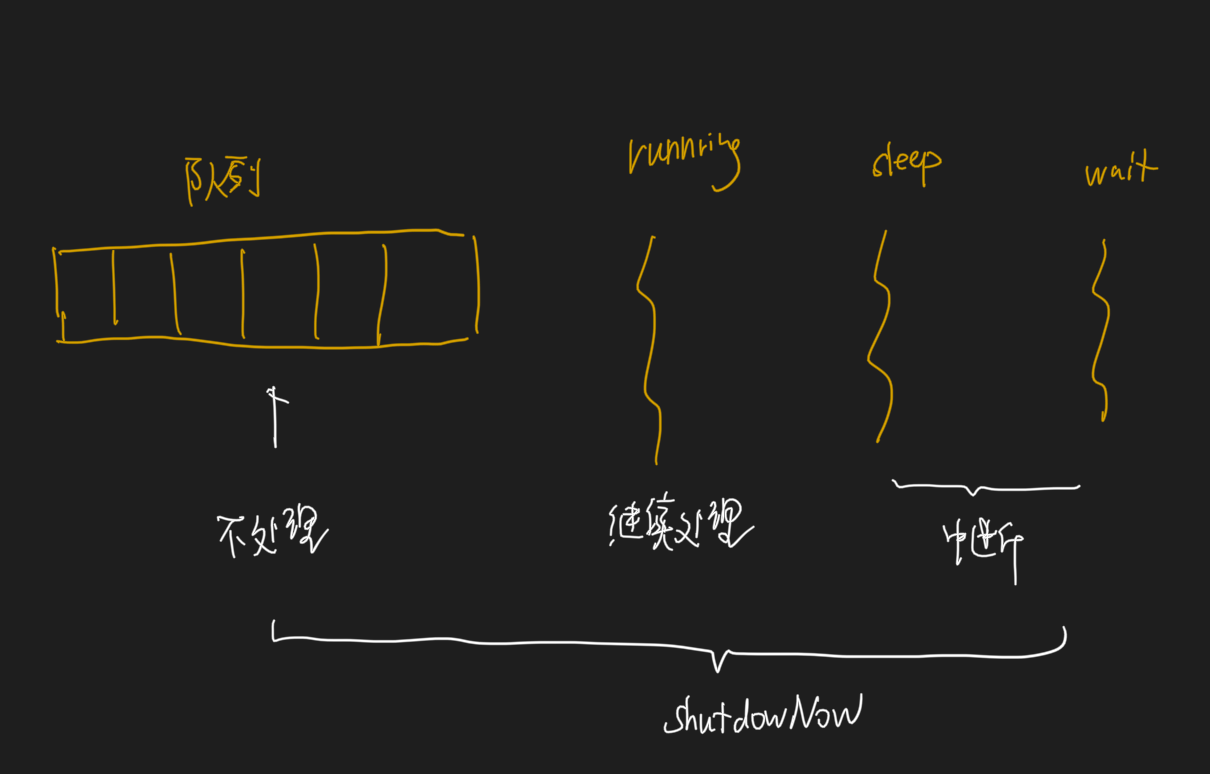 队列
runnring
sleep
wait
不处理
继续处理
中断
shutdowNow